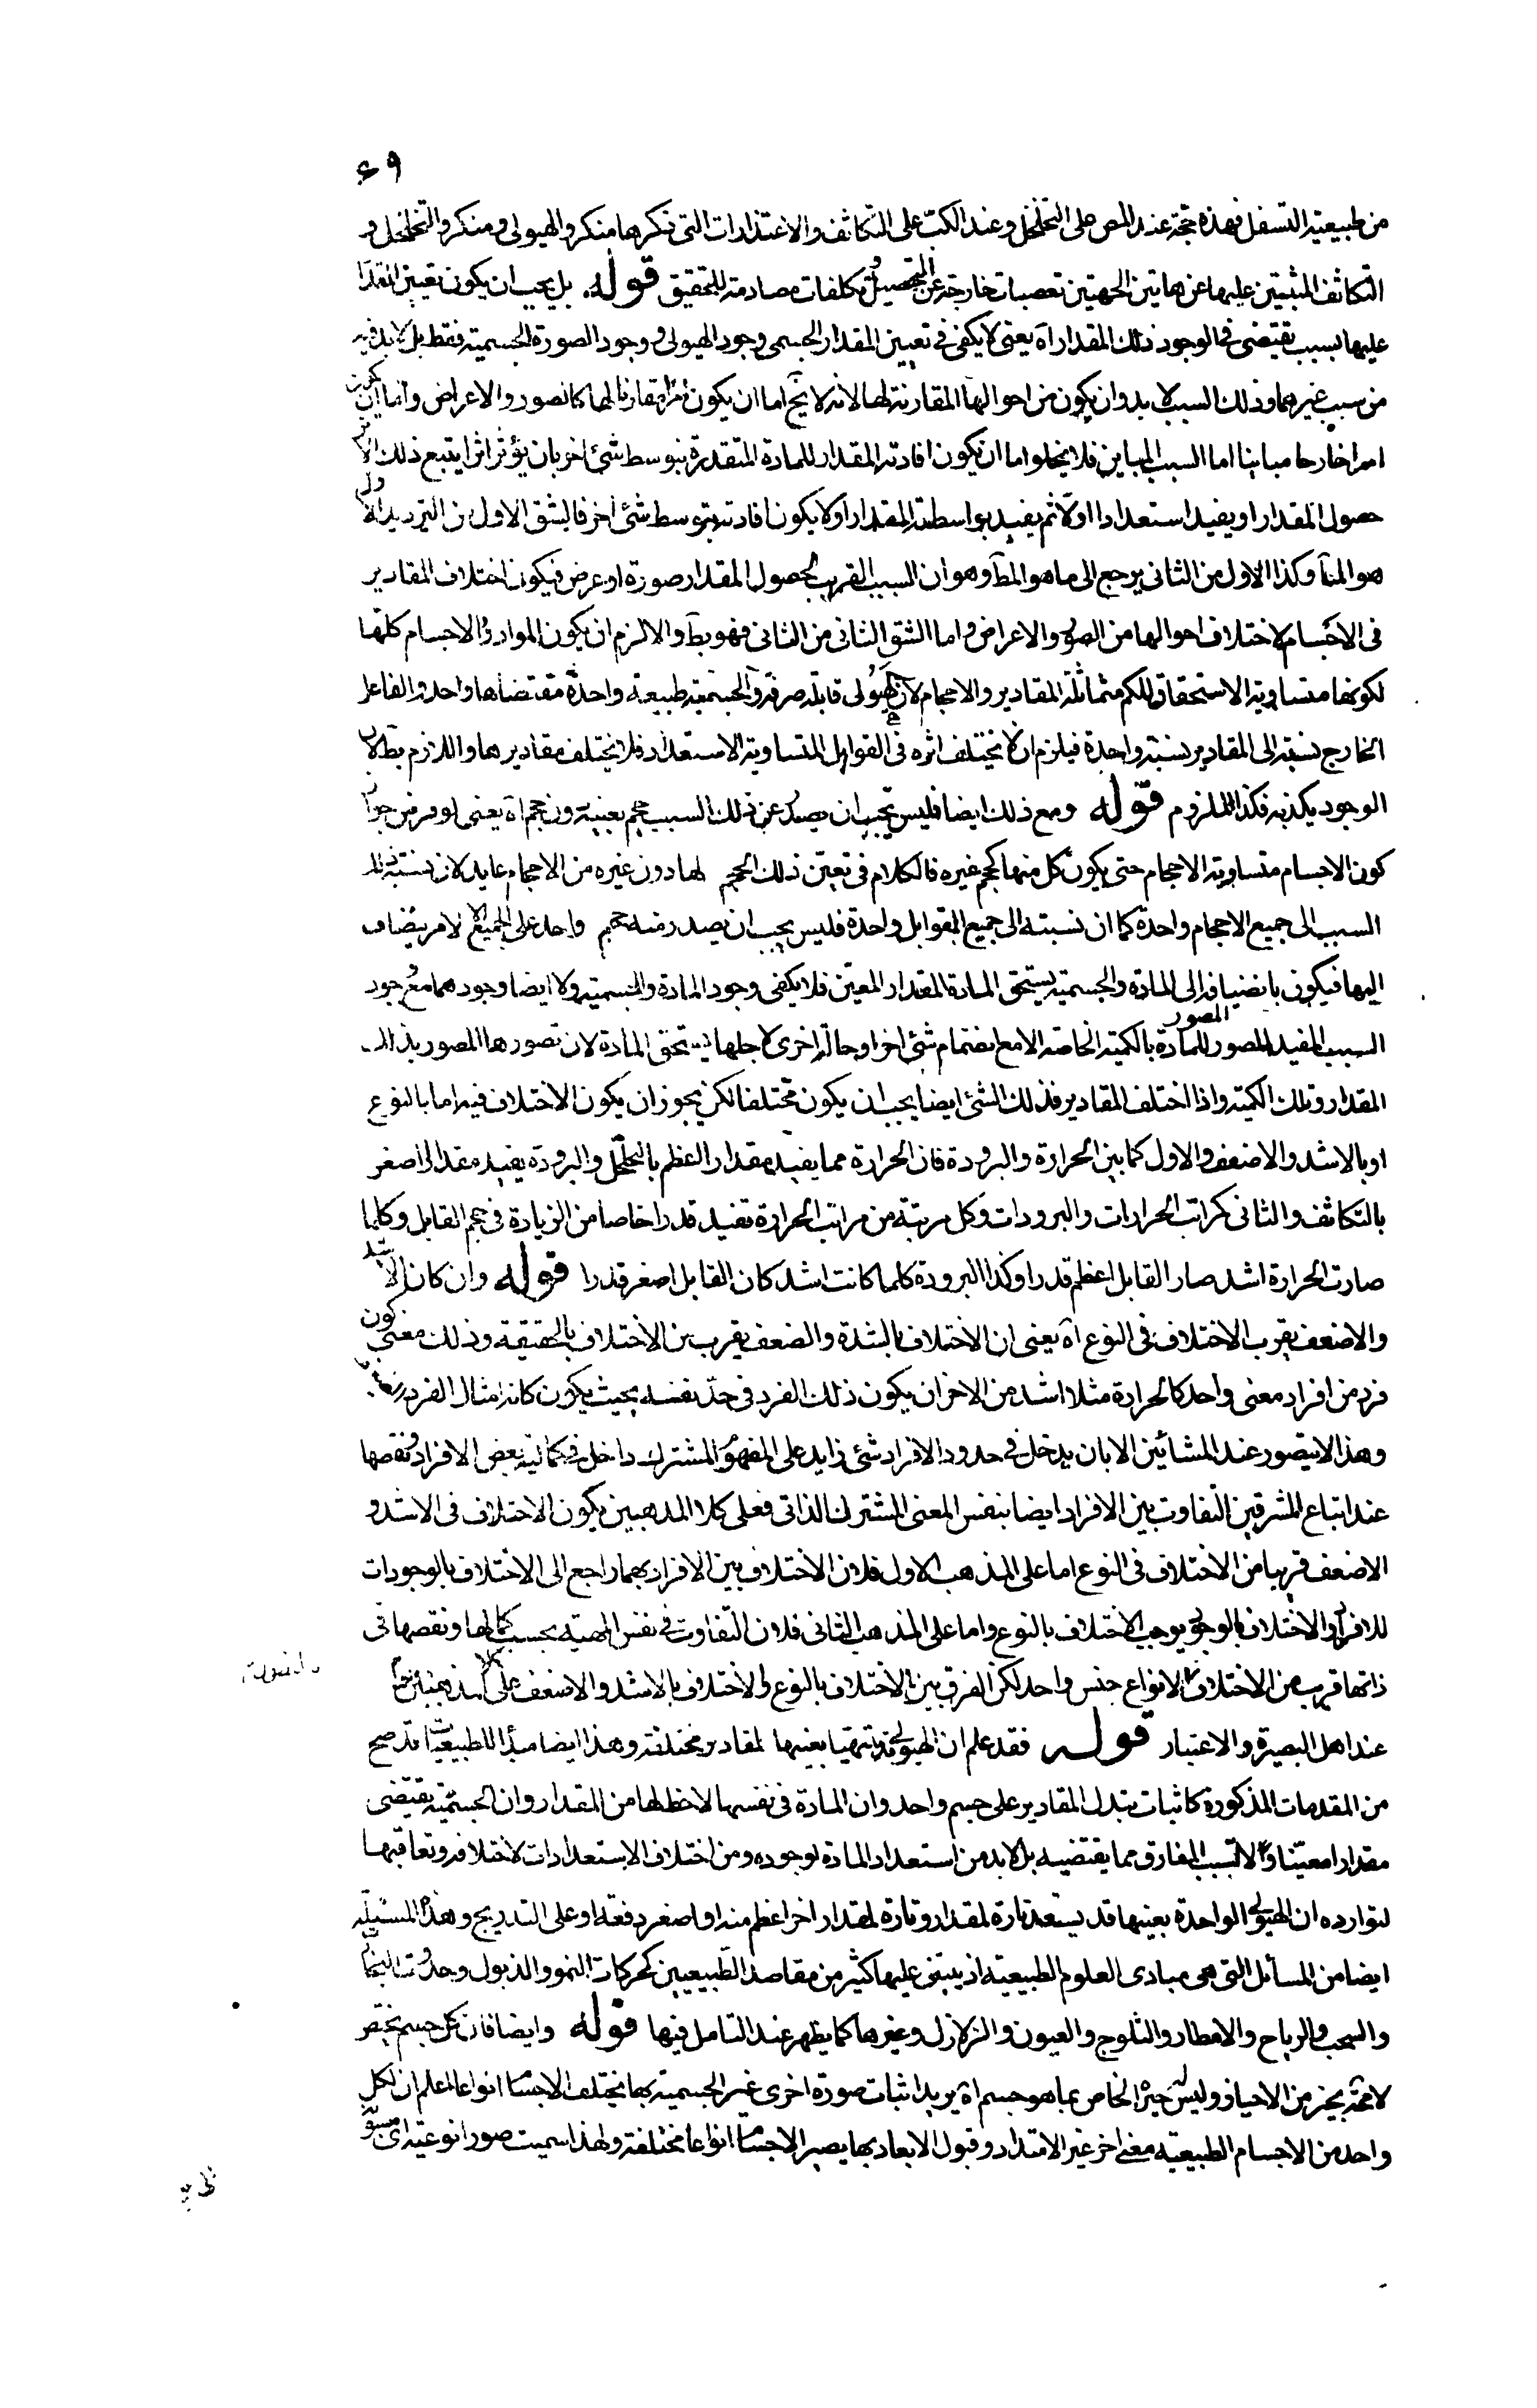 ٦٩
من طبيعة التسفل فهذه حجة عند المص على التخلخل وعند الكث على التكاثف والاعتذارات التى ذكرها منكروا الهيولى ومنكروا التخلخل و
التكاثف المثبتين عليها عن هاتين الحجتين تعصبات خارجة عن التحصيل وتكلفات مصادمة للتحقيق قوله بل يجب ان يكون تعين المقدار
عليها بسبب يقتضى فى الوجود ذلك المقدار آه يعنى لا يكفى فى تعيين المقدار الجسمى وجود الهيولى ووجود الصورة الجسمية فقط بل لا بد فيه
من سبب غيرهما وذلك السبب لا بد وان يكون من احوالها المقارنة لها لانه لا يخ اما ان يكون امرا مقارنا لها كالصور والاعراض واما ان يكون
امرا خارجا مباينا اما السبب المباين فلا يخلوا اما ان يكون افادته المقدار للمادة المتقدرة بتوسط شئ اخر بان يؤثر اثرا يتبع ذلك الاثر
حصول المقدار او يفيد استعدادا اولا ثم يفيد بواسطته المقدار او لا يكون افادته بتوسط شئ اخر فالشق الاول من الترديد الاول
هو المتا وكذا الاول من الثانى يرجع الى ما هو المط وهو ان السبب القريب لحصول المقدار صورة او عرض فيكون اختلاف المقادير
فى الاجسام لاختلاف احوالها من الصور والاعراض واما الشق الثانى من الثانى فهو بط والا لزم ان يكون المواد والاجسام كلها
لكونها متساوية الاستحقاق للكم متماثلة المقادير والاحجام لان الهيولى قابلة صرفة والجسمية طبيعة واحدة مقتضاها واحد والفاعل
الخارج نسبته الى المقادير نسبة واحدة فيلزم ان لا يختلف اثره فى القوابل المتساوية الاستعداد فلا يختلف مقاديرها واللازم بط لان
الوجود يكذبه فكذا الملزوم قوله ومع ذلك ايضا فليس يجب ان يصدر عن ذلك السبب حجم بعينه دون حجم آه يعنى لو فرض جواز
كون الاجسام متساوية الاحجام حتى يكون كل منها كحجم غيره فالكلام فى تعين ذلك الحجم لها دون غيره من الاحجام عايد لان نسبة ذلك
السبب الى جميع الاحجام واحدة كما ان نسبته الى جميع القوابل واحدة فليس يجب ان يصدر منه حجم واحد على الجميع الا لامر يضاف
اليها فيكون بانضيافه الى المادة والجسمية يستحق المادة المقدار المعين فلا يكفى وجود المادة والجسمية ولا ايضا وجودهما مع وجود
السبب المفيد المصور للمادة بالكمية الخاصة الا مع انضمام شئ اخر او حالة اخرى لاجلها يستحق المادة لان تصورها المصور بذلك
المقدار وتلك الكمية واذا اختلف المقادير فذلك الشئ ايضا يجب ان يكون مختلفا لكن يجوز ان يكون الاختلاف فيه اما بالنوع
او بالاشد والاضعف والاول كما بين الحرارة والبرودة فان الحرارة مما يفيد مقدار العظم بالتخلخل والبرودة يفيد مقدارا اصغر
بالتكاثف والثانى كمراتب الحرارات والبرودات وكل مرتبة من مراتب الحرارة تفيد قدرا خاصا من الزيادة فى حجم القابل وكلما
صارت الحرارة اشد صار القابل اعظم قدرا وكذا البرودة كلما كانت اشد كان القابل اصغر قدرا قوله وان كان الاشد
والاضعف يقرب الاختلاف فى النوع آه يعنى ان الاختلاف بالشدة والضعف يقرب من الاختلاف بالحقيقة وذلك معنى كون
فرد من افراد معنى واحد كالحرارة مثلا اشد من الاخر ان يكون ذلك الفرد فى حد نفسه بحيث يكون كانه امثال الفرد
وهذا لا يتصور عند المشائين الا بان يدخل فى حدود الافراد شئ زايد على المفهوم المشترك داخل فى كمالية بعض الافراد ونقصها
عند اتباع المشرقيين التفاوت بين الافراد ايضا بنفس المعنى المشترك الذاتى فعلى كلا المذهبين يكون الاختلاف فى الاشد و
الاضعف قريبا من الاختلاف فى النوع اما على المذهب الاول فلان الاختلاف بين الافراد بهما راجع الى الاختلاف بالوجودات
للافراد والاختلاف بالوجود يوجب الاختلاف بالنوع واما على المذهب الثانى فلان التفاوت فى نفس المهية بحسب كمالها ونقصها فى
ذاتها قريب من الاختلاف بالانواع جنس واحد لكن الفرق بين الاختلاف بالنوع والاختلاف بالاشد والاضعف على كلا المذهبين
عند اهل البصيرة والاعتبار قوله فقد علم ان الهيولى قد يتهيأ بعينها لمقادير مختلفة وهذا ايضا مبدأ للطبيعيات قد صح
من المقدمات المذكورة كاثبات تبدل المقادير على جسم واحد وان المادة فى نفسها لا حظ لها من المقدار وان الجسمية يقتضى
مقدارا معينا ولا السبب المفارق مما يقتضيه بل لا بد من استعداد المادة لوجوده ومن اختلاف الاستعدادات لاختلافه وتعاقبها
لتوارده ان الهيولى الواحدة بعينها قد يستعد تارة لمقدار وتارة لمقدار اخر اعظم منه او اصغر دفعة او على التدريج وهذه المسئلة
ايضا من المسائل التى هى مبادى العلوم الطبيعية اذ يبتنى عليها كثير من مقاصد الطبيعيين كحركات النمو والذبول وحدوث البخار
والسحب والرياح والامطار والثلوج والعيون والزلازل وغيرها كما يظهر عند التامل فيها قوله وايضا فان كل جسم يختص
لا محة بحيز من الاحياز وليس حيزه الخاص بما هو جسم آه يريد اثبات صورة اخرى غير الجسمية بها يختلف الاجسام انواعا اعلم ان لكل
واحد من الاجسام الطبيعية معنى اخر غير الامتداد وقبول الابعاد بها يصير الاجسام انواعا مختلفة ولهذا سميت صورا نوعية اى